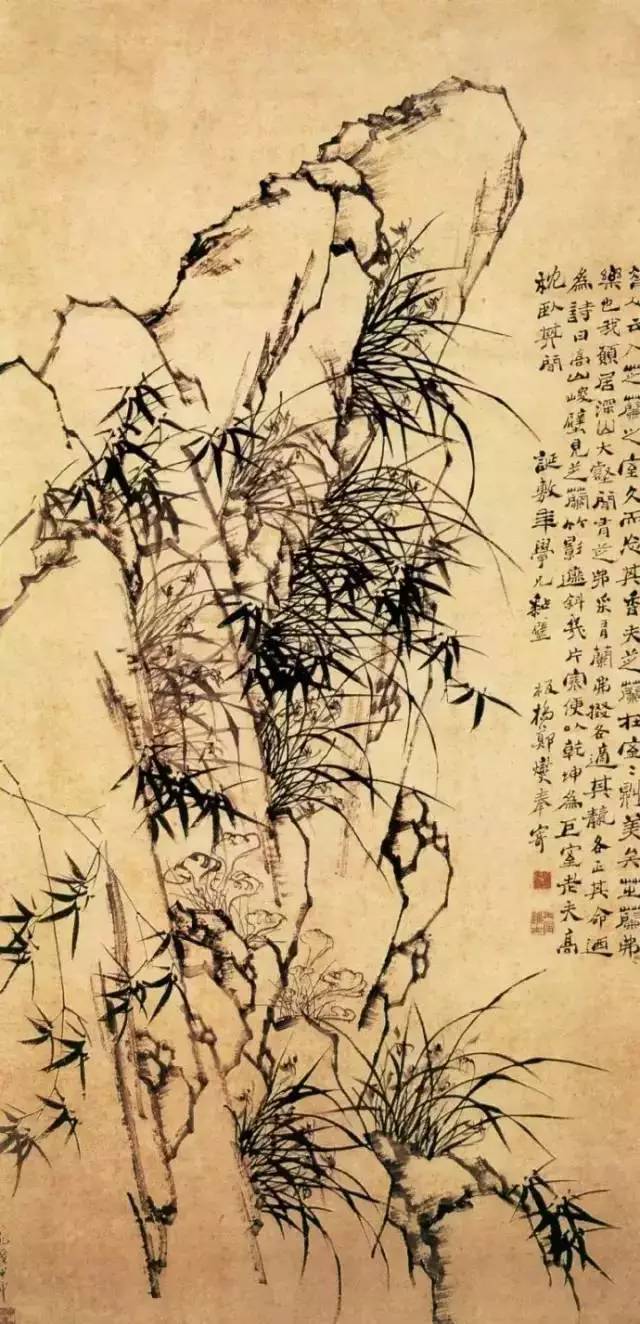 昔人云入芝蘭之室久而忘其香夫芝蘭在室室則美矣芝蘭弗
樂也我願居深山大壑間有芝弗采有蘭弗掇各適其各正其命迺
為詩曰高山峻壁見芝蘭竹影遮斜幾片寒便以乾坤為巨室老夫高
枕臥其間 誕敷年學兄黏壁 板橋鄭燮奉寄